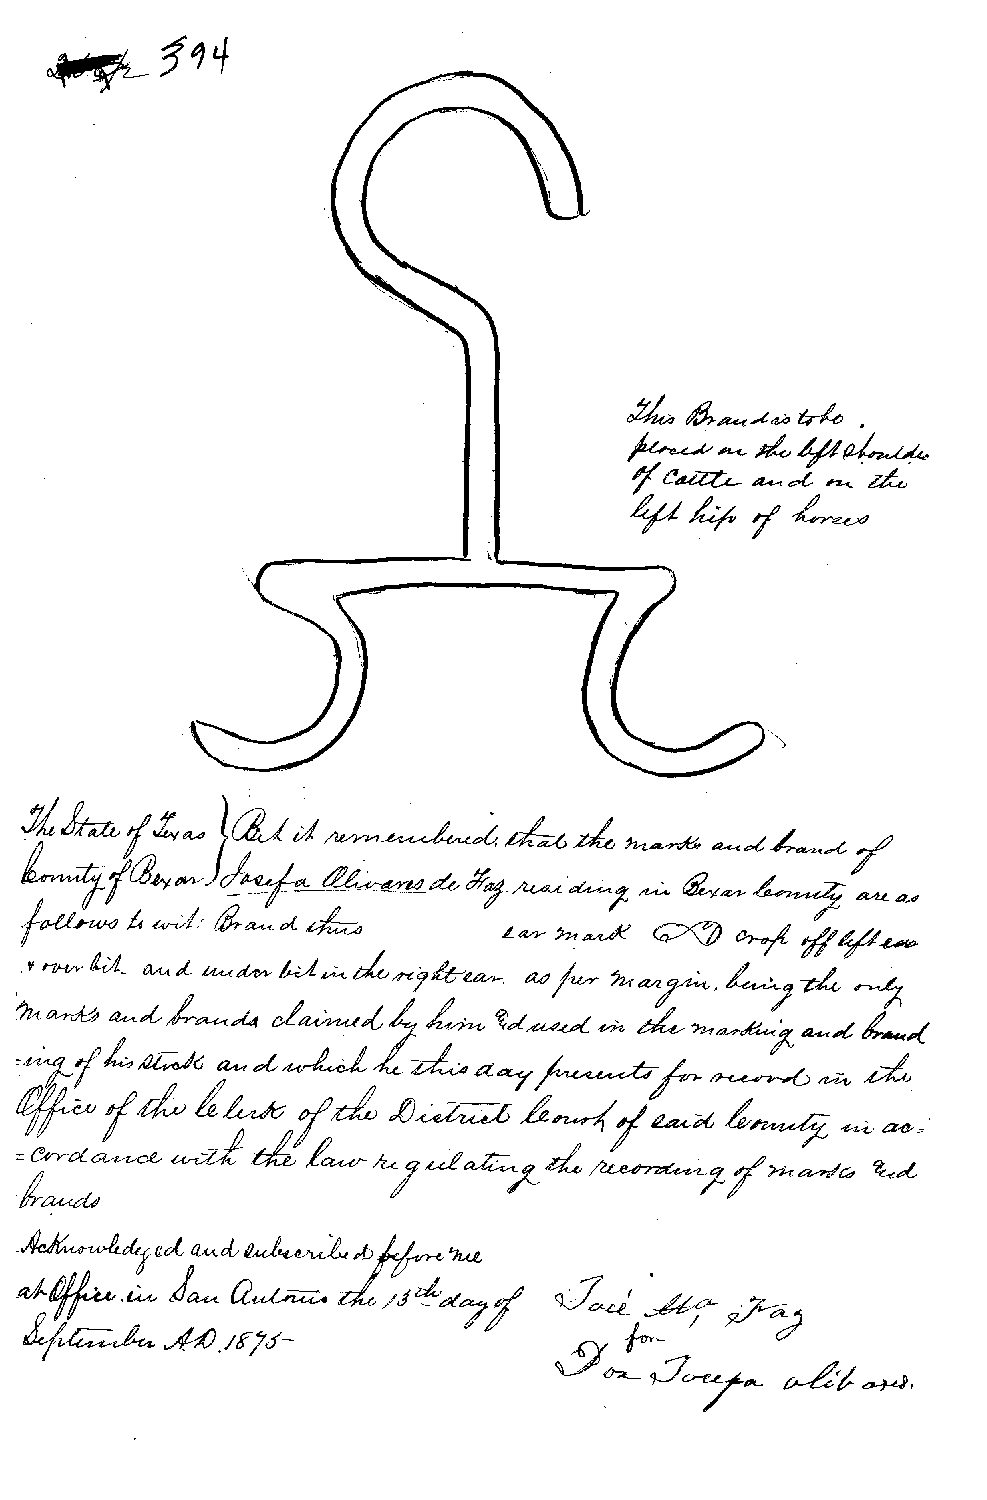 394
This Brand is to be
placed on the left shoulder
of Cattle and on the
left hip of horses
The State of Texas } Bet it remembered, that the marks and brand of
County of Bexar } Josefa Olivares de Faz residing in Bexar County are as
follows to wit: Brand thus ear mark crop off left ear
& over bit and under bit in the right ear. as per margin, being the only
marks and brands claimed by him and used in the marking and brand
=ing of his stock and which he this day presents for record in the
Office of the Clerk of the District Court of said County in ac=
=cordance with the law regulating the recording of marks and
brands
Acknowledged and subscribed before me
at Office in San Antonio the 13th day of
September A.D. 1875
José Ma, Faz
for
Doa Josefa olibares.